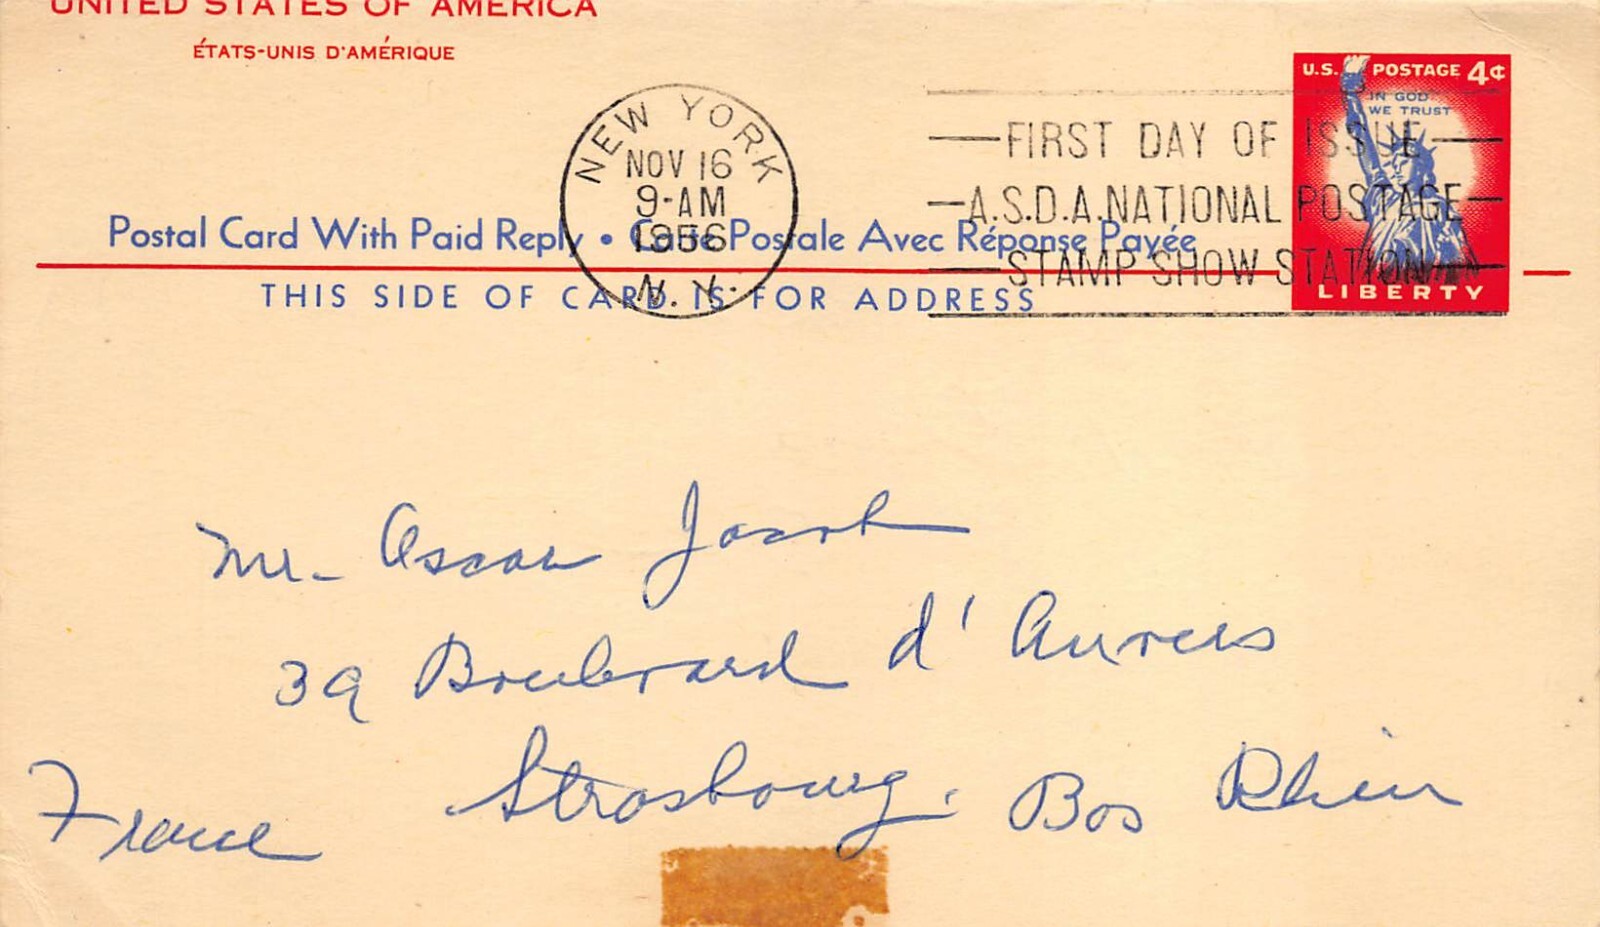 UNITED STATES OF AMERICA
ÉTATS-UNIS D'AMÉRIQUE
U.S. POSTAGE 4¢
IN GOD
WE TRUST
LIBERTY
NEW YORK
NOV 16
9-AM
1956
N.Y.
FIRST DAY OF ISSUE
A.S.D.A. NATIONAL POSTAGE
STAMP SHOW STATION
Postal Card With Paid Reply • Carte Postale Avec Réponse Payée
THIS SIDE OF CARD IS FOR ADDRESS
Mr. Oscar Jacob
39 Boulevard d'Anvers
Strasbourg, Bas Rhin
France